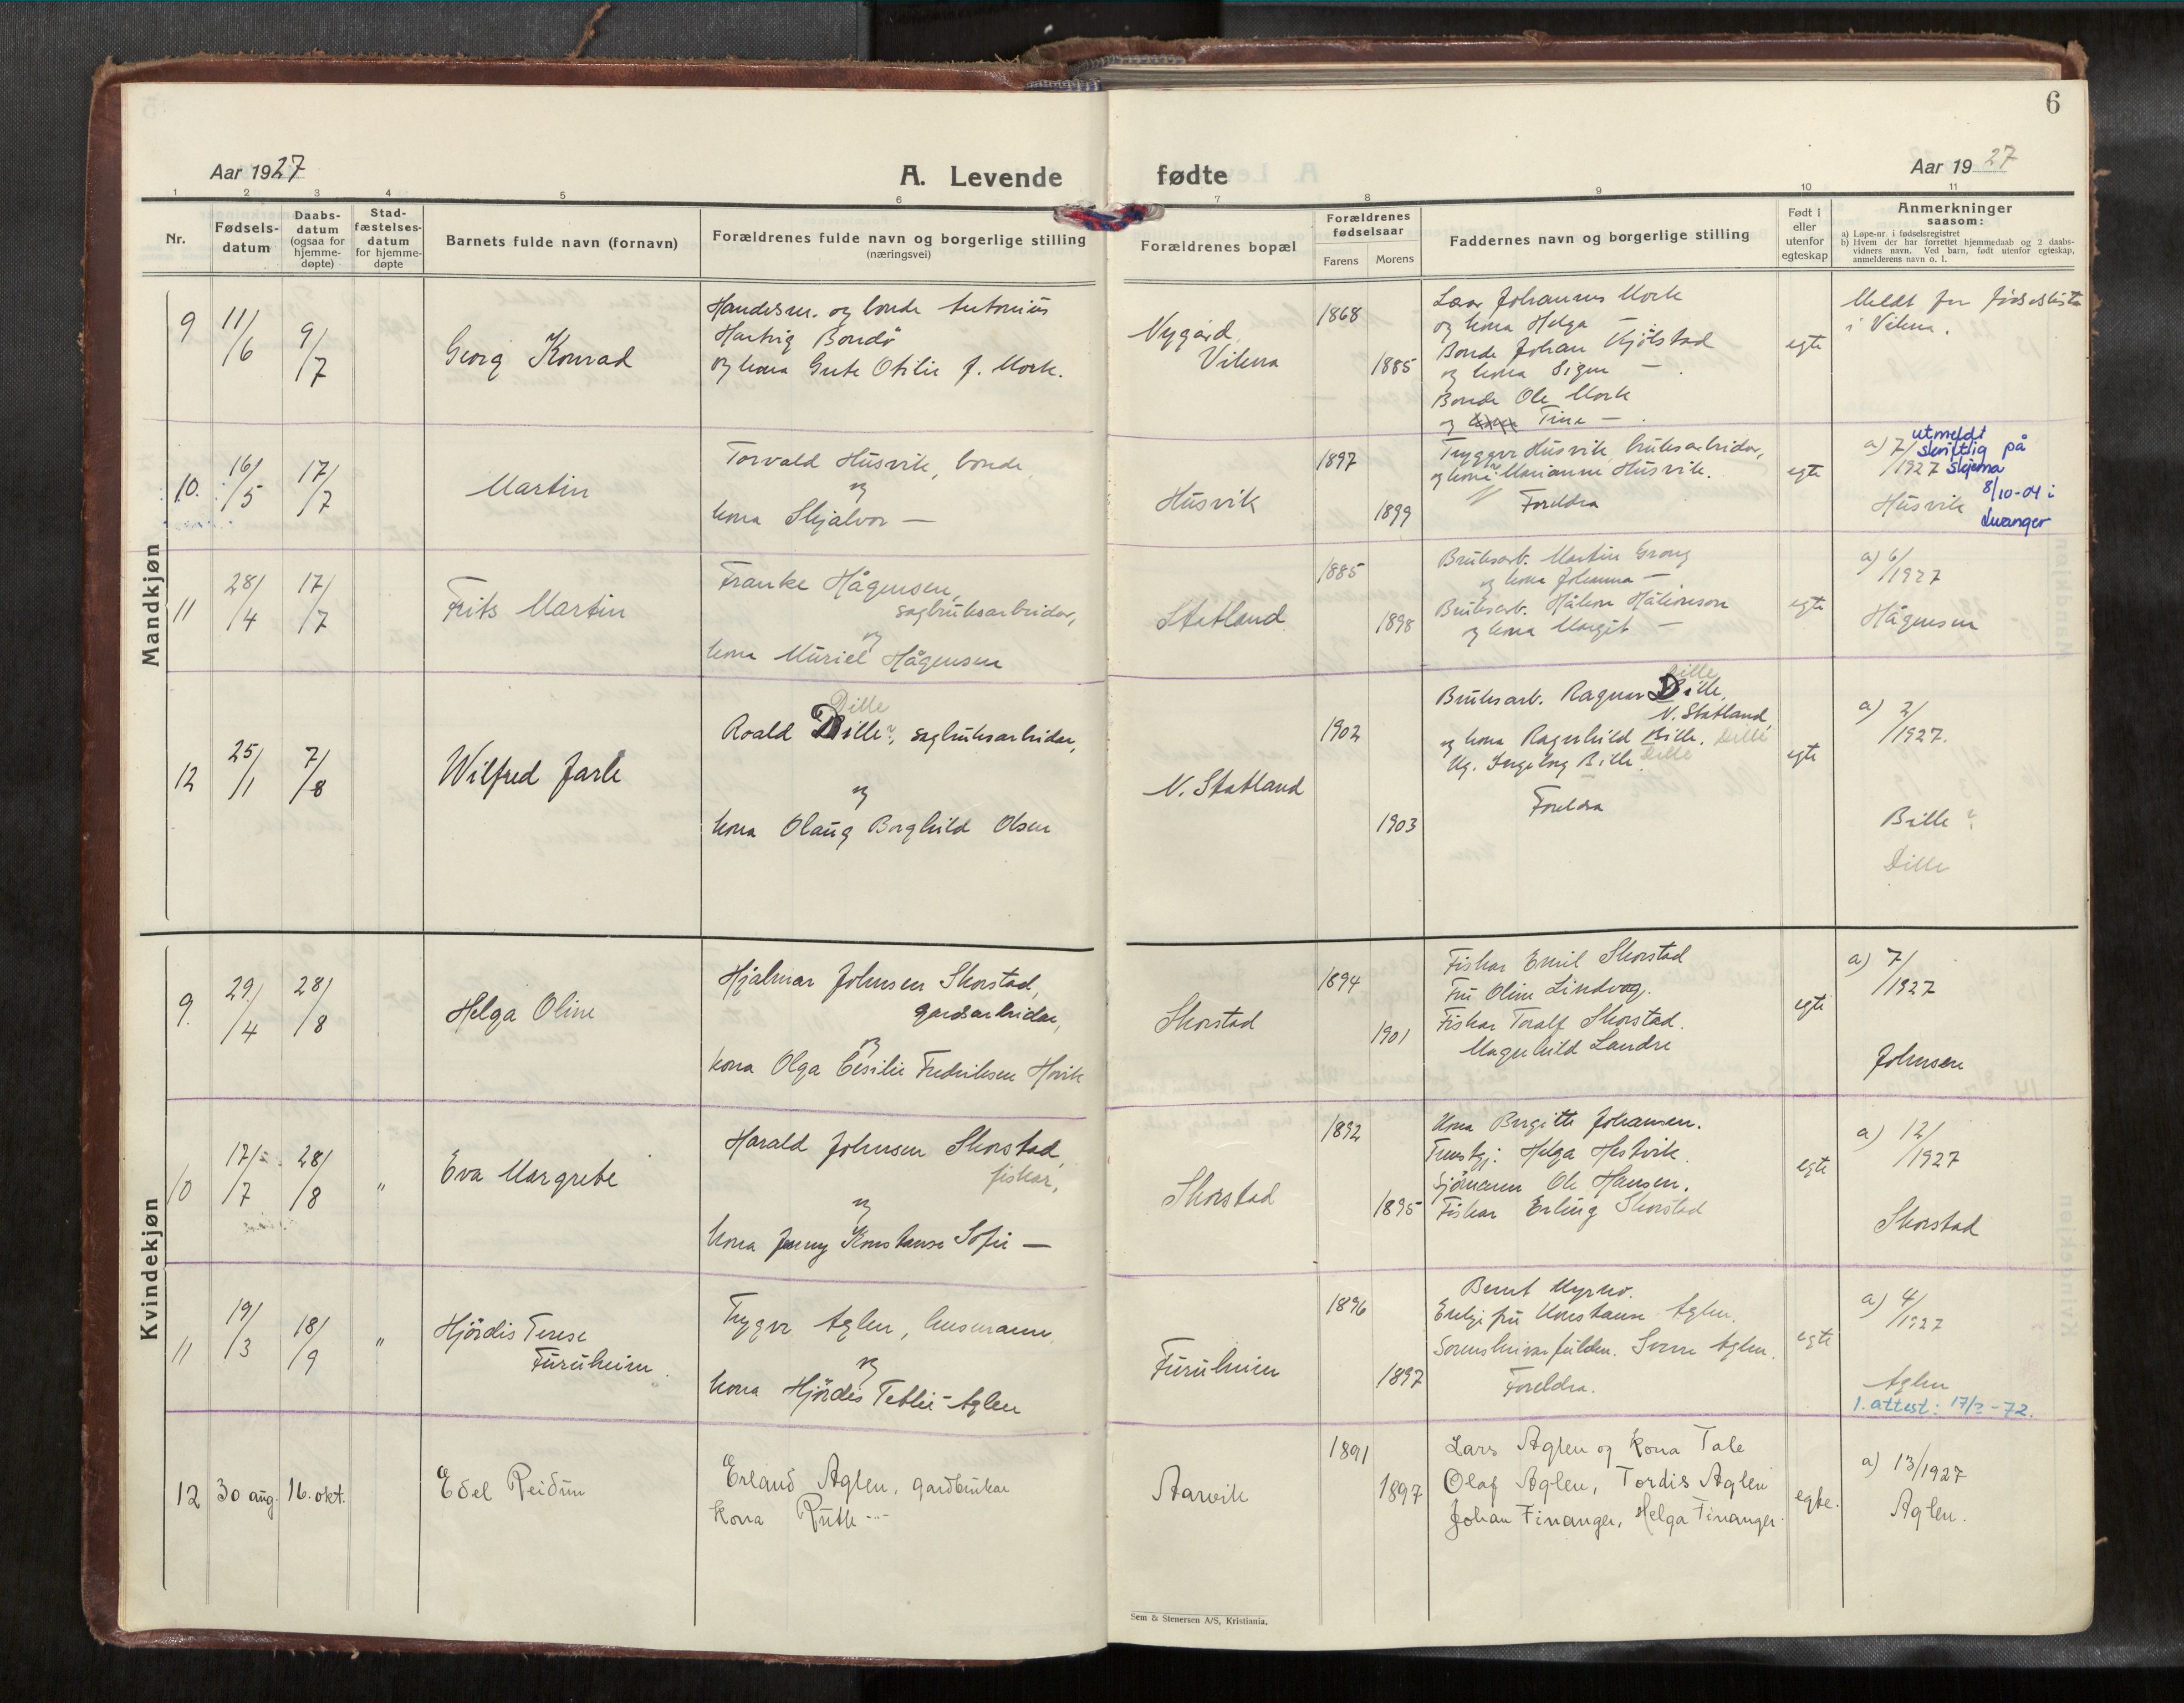 6
Aar 1927
A. Levende
fødte
Aar 1927
1 2 3 4 5 6 7 8 9 10 11
Nr.
Fødsels-
datum
Daabs-
datum
(ogsaa for
hjemme-
døpte)
Stad-
fæstelses-
datum
for hjemme-
døpte
Barnets fulde navn (fornavn)
Forældrenes fulde navn og borgerlige stilling
(næringsvei)
Forældrenes bopæl
Forældrenes
fødselsaar
Farens
Morens
Faddernes navn og borgerlige stilling
Født i
eller
utenfor
egteskap
Anmerkninger
saasom:
a) Løpe-nr. i fødselsregistret
b) Hvem der har forrettet hjemmedaab og 2 daabs-
vidners navn. Ved barn, født utenfor egteskap,
anmelderens navn o. l.
Mandkjøn
9
11/6
9/7
Georg Konrad
og bonde Antonius
Hartvig Bondø
og kona Otilie J. Mork.
Nygård,
Vikna
1868
1885
Johannes Mork
og kona Helga —
Bonde Johan
og kona Signe —
Bonde Ole Mork
og Tine —
egte
Meldt
i Vikna.
10.
16/5
17/7
Martin
Torvald Husvik, bonde
og
kona Skjalvor —
Husvik
1897
1899
Trygve Husvik, bruksarbeidar,
og kona Marianne Husvik.
Foreldra
egte
a) 7/1927
Husvik
utmeldt
skriftlig på
skjema
8/10-04 i
Levanger
11
28/4
17/7
Frits Martin
Franke Hågensen,
sagbruksarbeidar,
og
kona Muriel Hågensen
Statland
1885
1898
Bruksarb. Martin Grong
og kona Johanna —
Bruksarb. Håkon Håkonson
og kona Margit —
egte
a) 6/1927
Hågensen
12
25/1
7/8
Wilfred Jarle
Dille
Roald Dille?, sagbruksarbeidar,
og
kona Olaug Borghild Olsen
N. Statland
1902
1903
Dille
Bruksarb. Ragnar Dille,
N. Statland,
og kona Ragnhild Bille. Dille
Ug. Ingeborg Bille. Dille
Foreldra
egte
a) 2/1927.
Bille?
Dille
Kvindekjøn
9.
29/4
28/8
"
Helga Oline
Hjalmar Johnsen Skorstad,
gardsarbeidar,
og
kona Olga Cesilie Fredriksen Hovik
Skorstad
1894
1901
Fiskar Emil Skorstad
Fru Oline Lindvag.
Fiskar Toralf Skorstad.
Magnhild Landre
egte
a) 7/1927
Johnsen
10
17/7
28/8
"
Eva Margrete
Harald Johnsen Skorstad,
fiskar,
og
kona Jenny Konstanse Sofie —
Skorstad
1892
1895
Kona Birgitte Johansen.
Helga Hestvik.
Sjömann Ole Hansen.
Fiskar Erling Skorstad
egte
a) 12/1927
Skorstad
11
19/3
18/9
"
Hjördis Terese
Furuheim.
Trygve Aglen, husmann
og
kona Hjördis Aglen
Furuheim
1896
1897
Bernt Myrmo.
Enkjefru Konstanse Aglen.
Sorenskrivarfullm. Sverre Aglen.
Foreldra.
egte
a) 4/1927
Aglen
1. attest: 17/2-72.
12
30 aug.
16. okt.
Edel Reidun
Erland Aglen, gardbrukar
kona Ruth —
Aarvik
1891
1897
Lars Aglen og kona Tale
Olaf Aglen, Tordis Aglen
Johan Finanger, Helga Finanger.
egte.
a) 13/1927
Aglen.
Sem & Stenersen A/S, Kristiania.